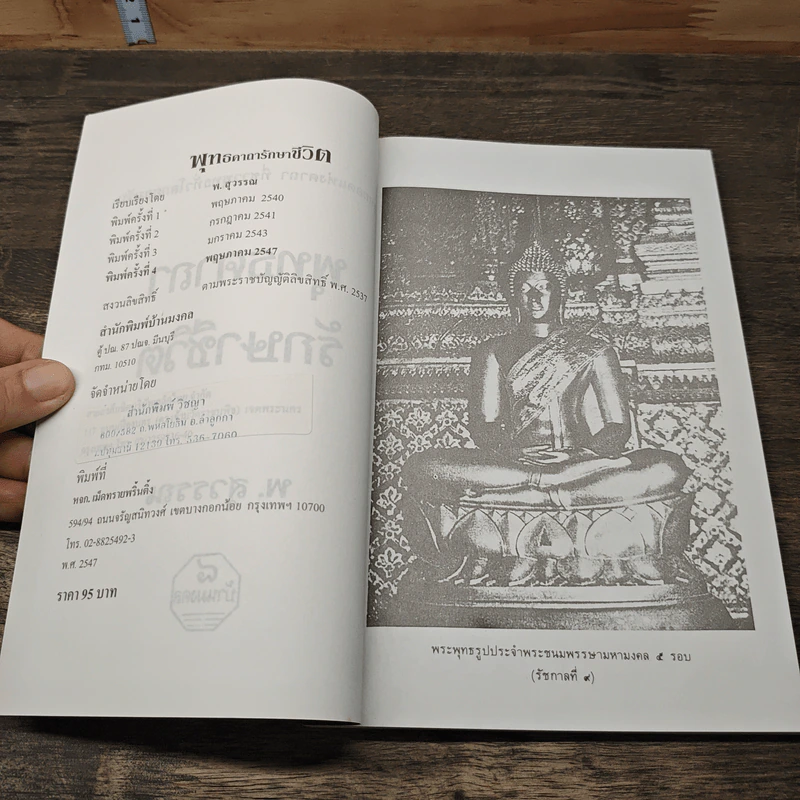 พุทธคาถารักษาชีวิต
เรียบเรียงโดย พ. สุวรรณ
พิมพ์ครั้งที่ 1 พฤษภาคม 2540
พิมพ์ครั้งที่ 2 กรกฎาคม 2541
พิมพ์ครั้งที่ 3 มกราคม 2543
พิมพ์ครั้งที่ 4 พฤษภาคม 2547
สงวนลิขสิทธิ์ ตามพระราชบัญญัติลิขสิทธิ์ พ.ศ. 2537
สำนักพิมพ์บ้านมงคล
ตู้ ปณ. 87 ปณจ. มีนบุรี
กทม. 10510
จัดจำหน่ายโดย
สำนักพิมพ์ วิชญา
600/582 ถ.พหลโยธิน อ.ลำลูกกา
จ.ปทุมธานี 12130 โทร. 536-7060
พิมพ์ที่
หจก. เม็ดทรายพริ้นติ้ง
594/94 ถนนจรัญสนิทวงศ์ เขตบางกอกน้อย กรุงเทพฯ 10700
โทร. 02-8825492-3
พ.ศ. 2547
ราคา 95 บาท
พระพุทธรูปประจำพระชนมพรรษามหามงคล ๕ รอบ
(รัชกาลที่ ๙)